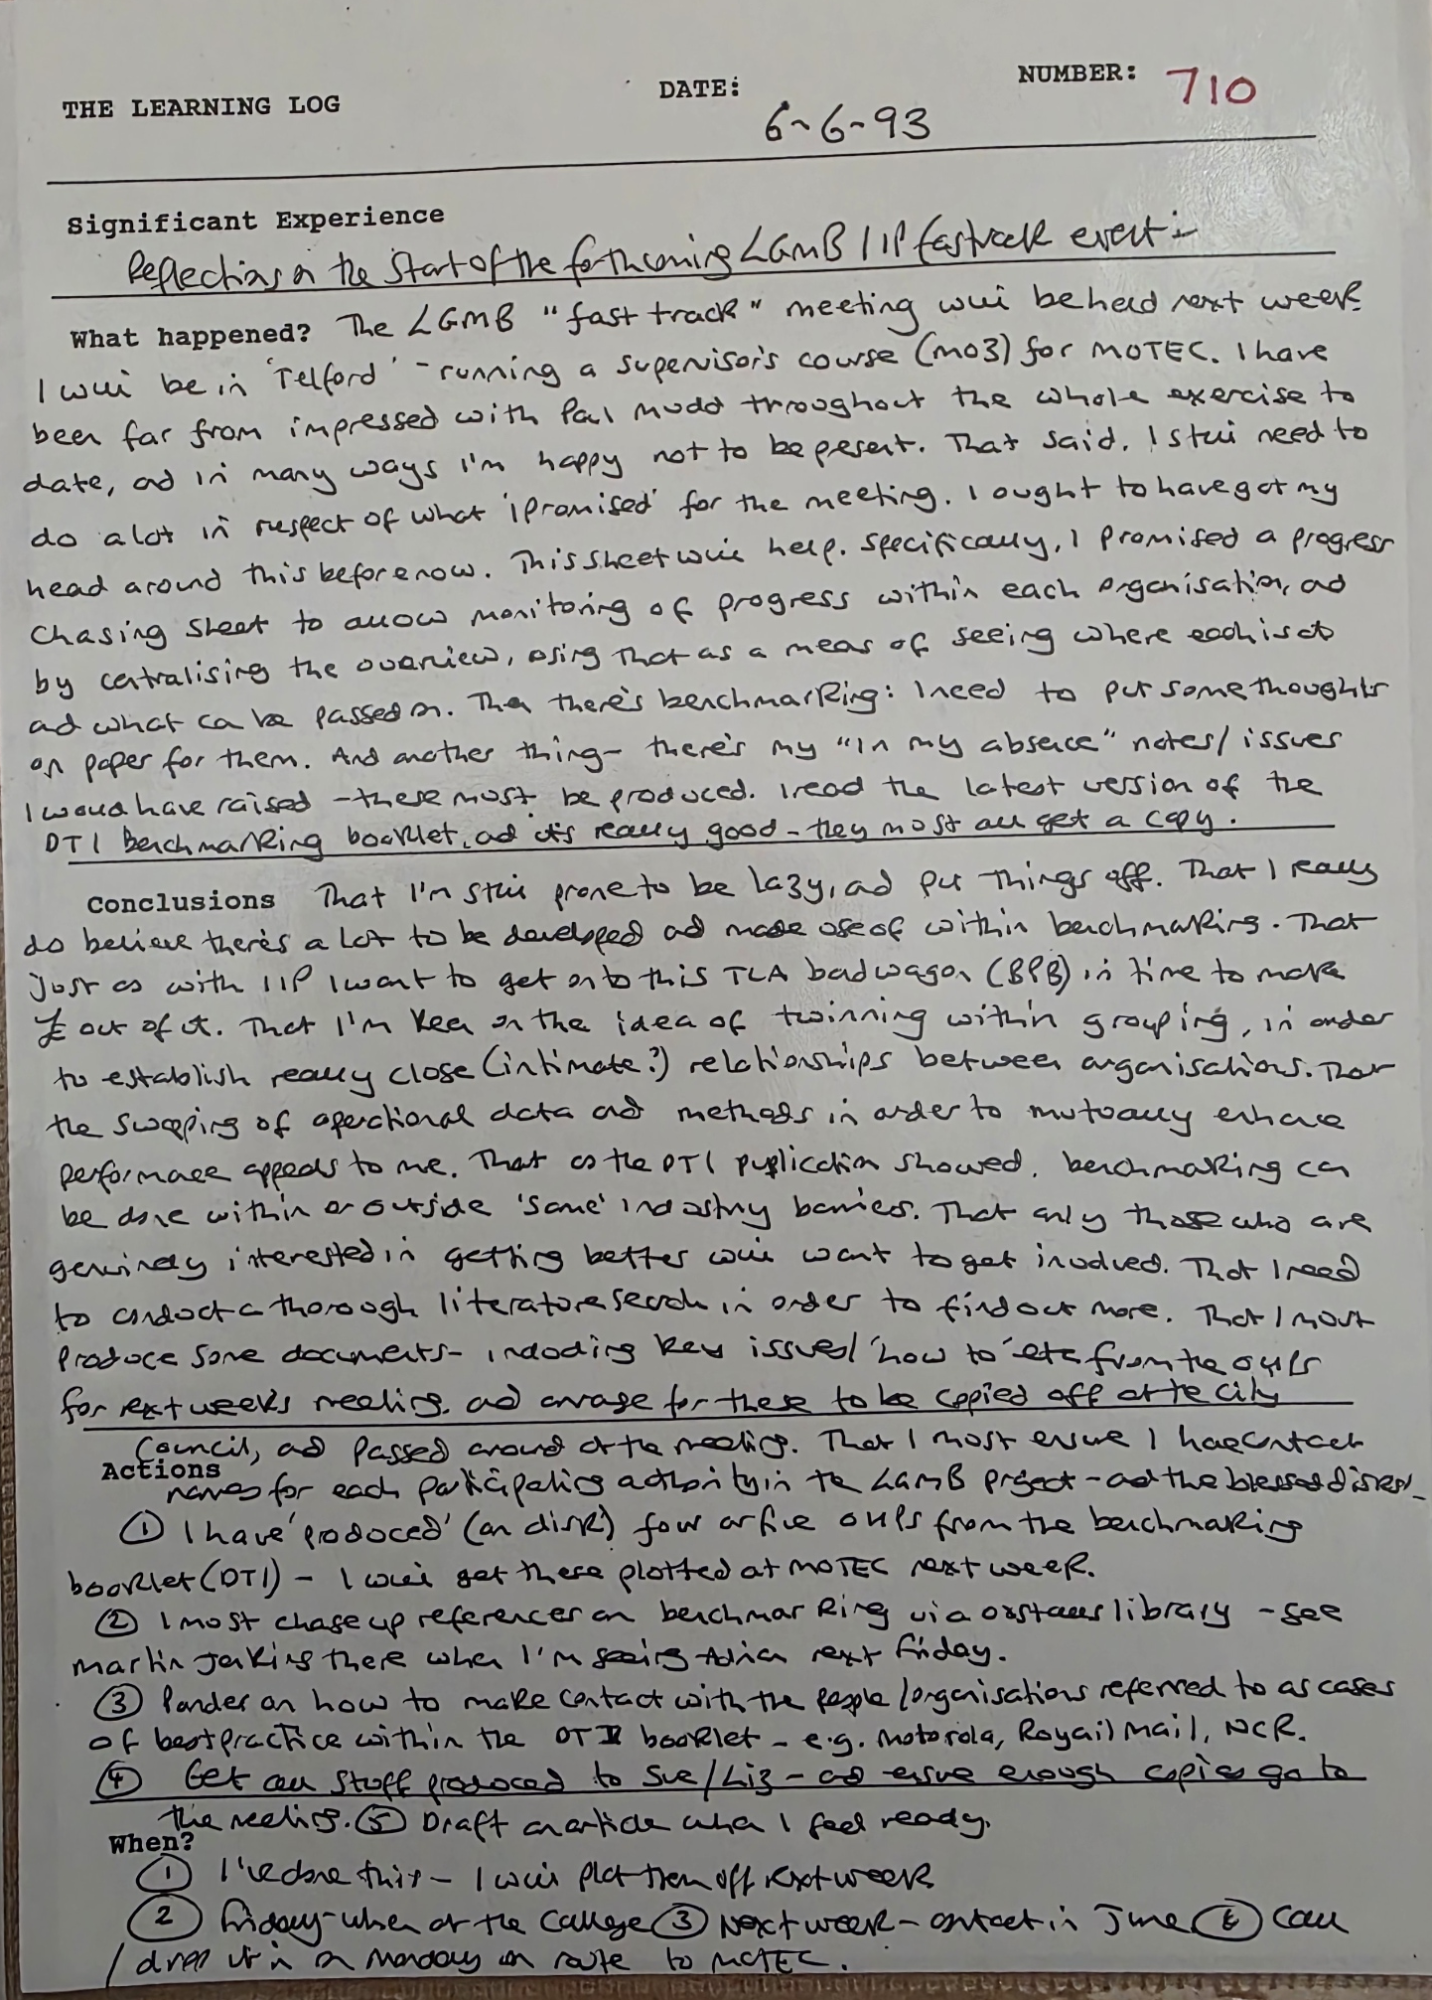 THE LEARNING LOG DATE: 6-6-93 NUMBER: 710
Significant Experience
Reflections on the start of the forthcoming LGMB IIP fastrack event:-
What happened? The LGMB "fast track" meeting will be held next week.
I will be in 'Telford' - running a supervisor's course (M03) for MOTEC. I have
been far from impressed with Paul Mudd throughout the whole exercise to
date, and in many ways I'm happy not to be present. That said, I still need to
do a lot in respect of what 'I promised' for the meeting. I ought to have got my
head around this before now. This sheet will help. Specifically, I promised a progress
chasing sheet to allow monitoring of progress within each organisation, and
by centralising the overview, using that as a means of seeing where each is at
and what can be passed on. Then there's benchmarking: I need to put some thoughts
on paper for them. And another thing - there's my "in my absence" notes/issues
I would have raised - these must be produced. I read the latest version of the
DTI benchmarking booklet, and it's really good - they must all get a copy.
Conclusions That I'm still prone to be lazy, and put things off. That I really
do believe there's a lot to be developed and made use of within benchmarking. That
just as with IIP I want to get onto this TLA bandwagon (BPB) in time to make
£ out of it. That I'm keen on the idea of twinning within grouping, in order
to establish really close (intimate?) relationships between organisations. That
the swapping of operational data and methods in order to mutually enhance
performance appeals to me. That as the DTI publication showed, benchmarking can
be done within or outside 'same' industry barriers. That only those who are
genuinely interested in getting better will want to get involved. That I need
to conduct a thorough literature search in order to find out more. That I must
produce some documents - including key issues/'how to' etc from the OHPs
for next week's meeting, and arrange for these to be copied off at the City
Council, and passed around at the meeting. That I must ensure I have contact
Actions
names for each participating authority in the LGMB project - and the blessed disks!
① I have 'produced' (on disk) four or five OHPs from the benchmarking
booklet (DTI) - I will get these plotted at MOTEC next week.
② I must chase up references on benchmarking via library - see
Martin Jenkins there when I'm seeing Adrian next Friday.
③ Ponder on how to make contact with the people/organisations referred to as cases
of best practice within the DTI booklet - e.g. Motorola, Royail Mail, NCR.
④ Get all stuff produced to Sue/Liz - and ensure enough copies go to
the meeting. ⑤ Draft an article when I feel ready.
When?
① I've done this - I will plot them off next week
② Friday - when at the College ③ Next week - contact in June ④ Call
/drop it in on Monday en route to MOTEC.